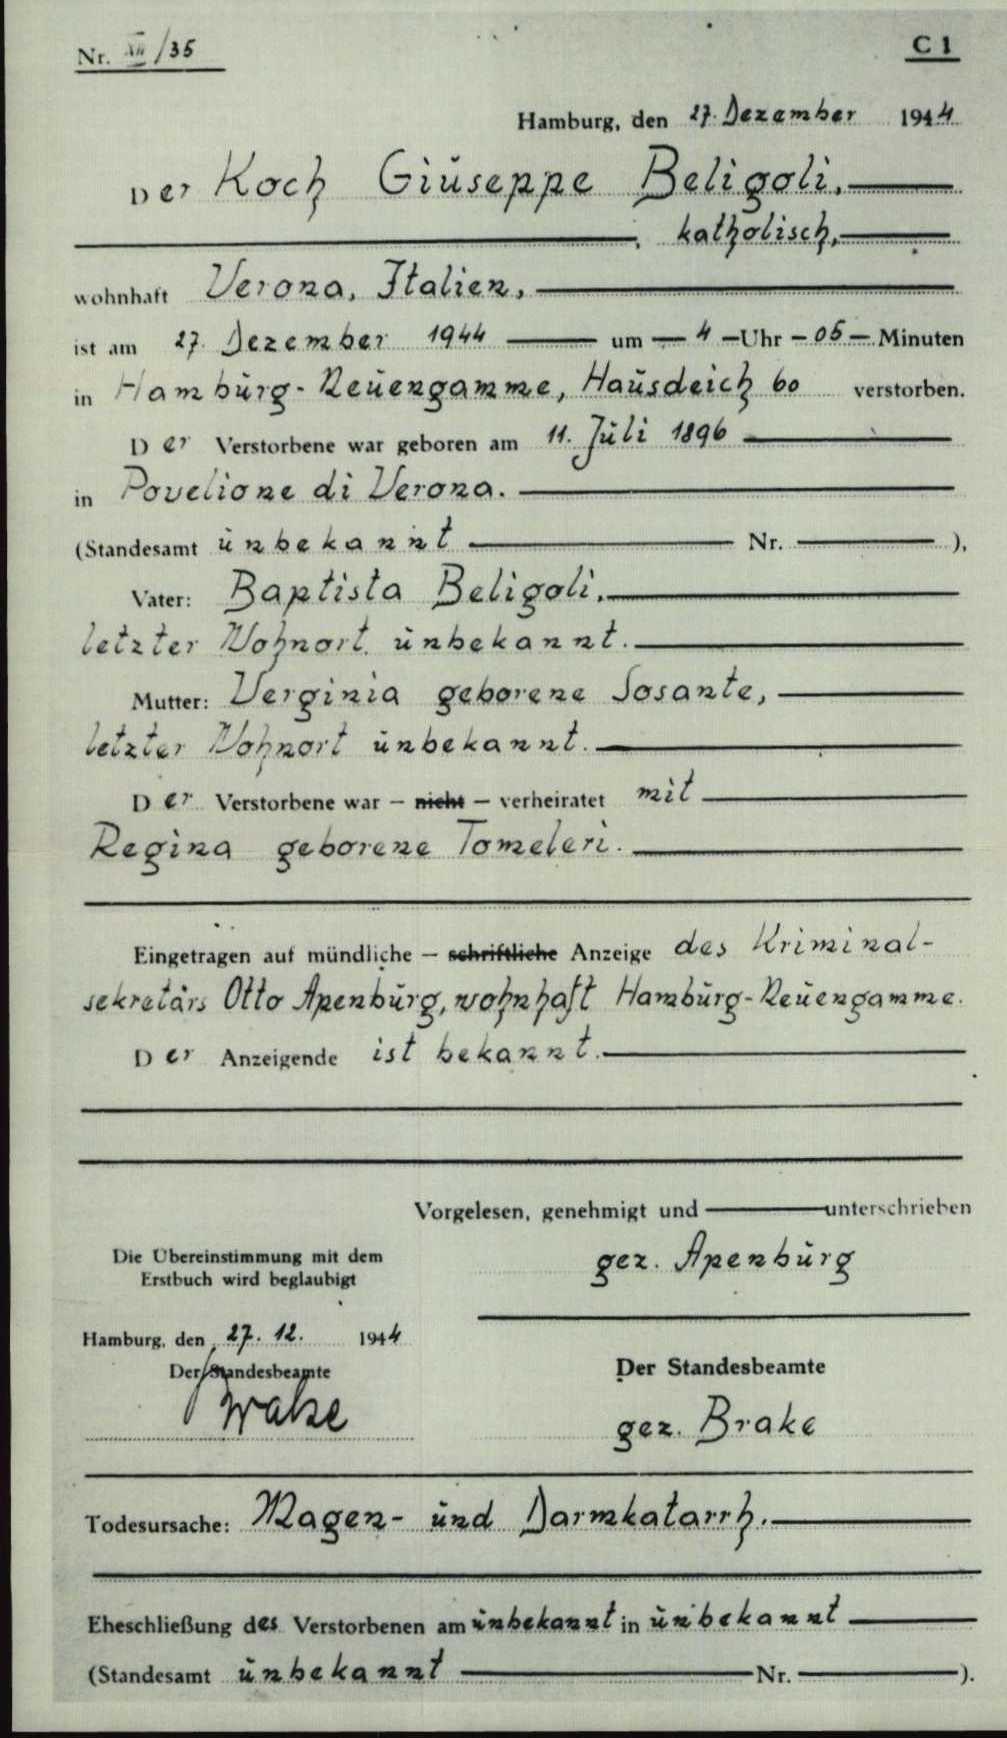 Nr. XII/35
C 1
Hamburg, den 27. Dezember 1944
Der Koch Giuseppe Beligoli,
, katholisch,
wohnhaft Verona, Italien,
ist am 27. Dezember 1944 um 4 Uhr 05 Minuten
in Hamburg-Neuengamme, Hausdeich 60 verstorben.
Der Verstorbene war geboren am 11. Juli 1896
in Povelione di Verona.
(Standesamt unbekannt Nr. ),
Vater: Baptista Beligoli,
letzter Wohnort unbekannt.
Mutter: Verginia geborene Sosante,
letzter Wohnort unbekannt.
Der Verstorbene war – nicht – verheiratet mit
Regina geborene Tomeleri.
Eingetragen auf mündliche – schriftliche Anzeige des Kriminal-
sekretärs Otto Apenburg, wohnhaft Hamburg-Neuengamme.
Der Anzeigende ist bekannt.
Vorgelesen, genehmigt und unterschrieben
gez. Apenburg
Die Übereinstimmung mit dem
Erstbuch wird beglaubigt
Hamburg, den 27. 12. 1944
Der Standesbeamte
Brake
Der Standesbeamte
gez. Brake
Todesursache: Magen- und Darmkatarrh.
Eheschließung des Verstorbenen am unbekannt in unbekannt
(Standesamt unbekannt Nr. ).